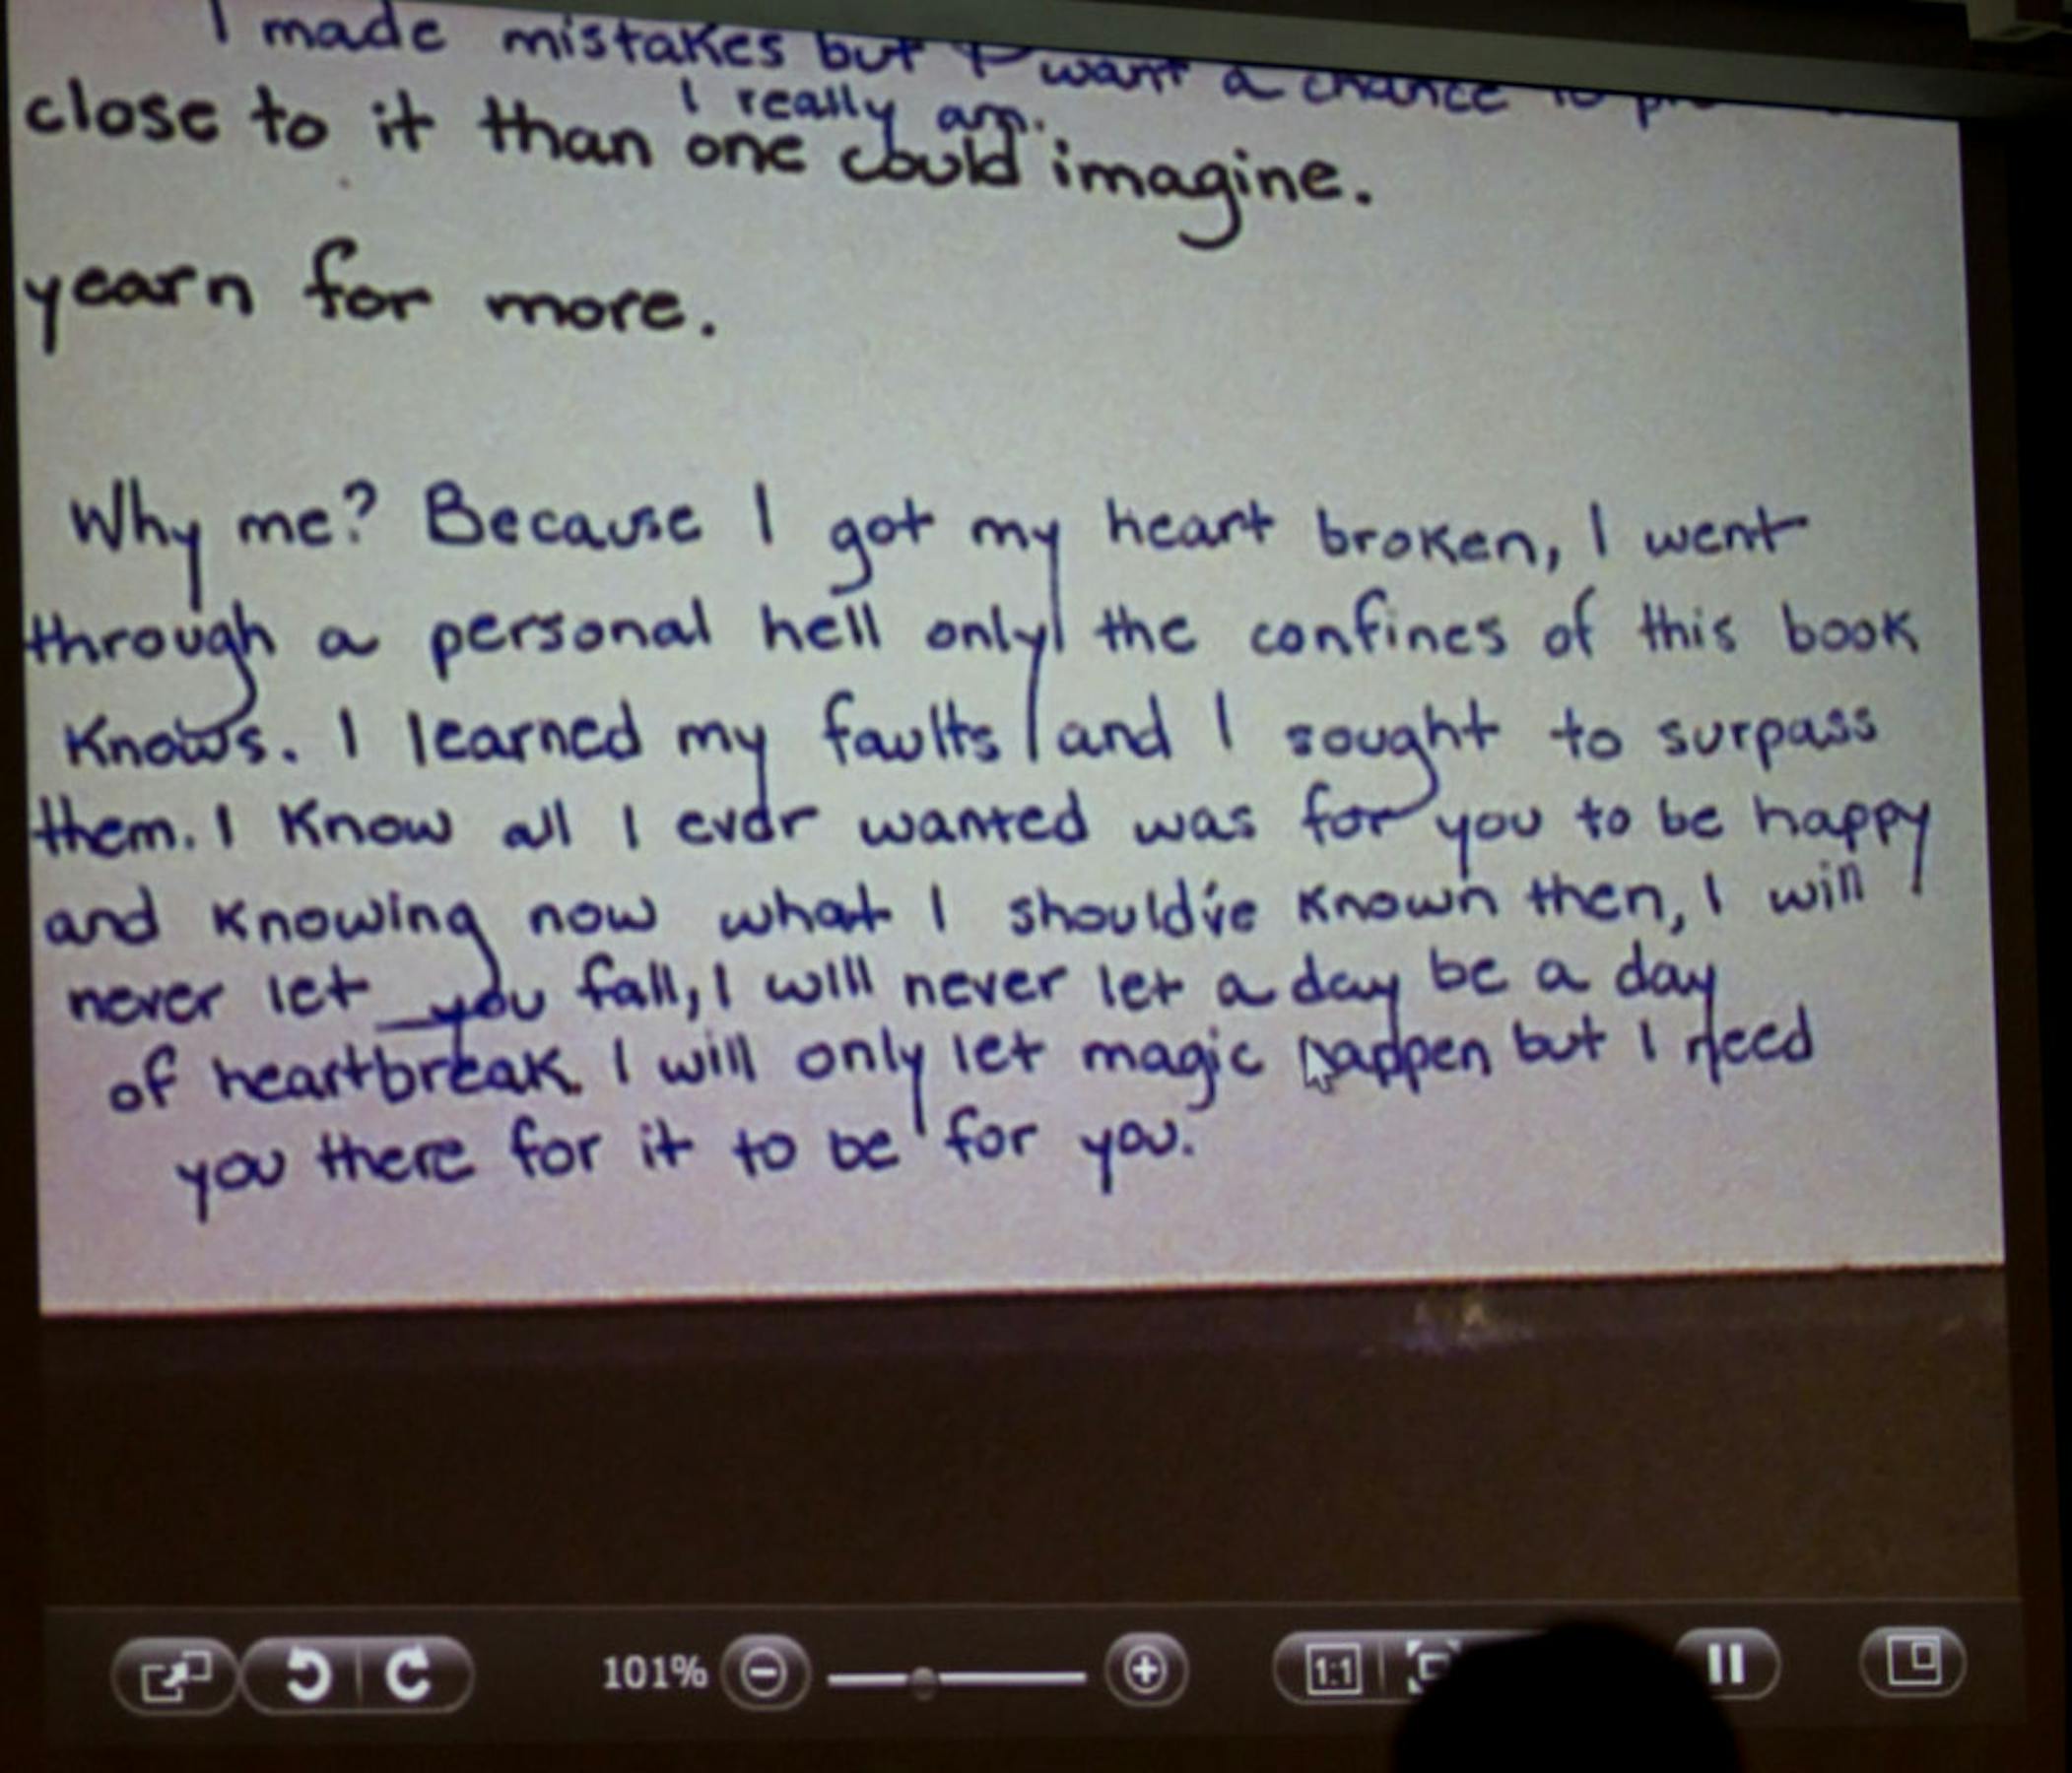 I made mistakes but I want a chance to
I really am.
close to it than one could imagine.
yearn for more.
Why me? Because I got my heart broken, I went
through a personal hell only the confines of this book
knows. I learned my faults and I sought to surpass
them. I know all I ever wanted was for you to be happy
and knowing now what I should've known then, I will
never let you fall, I will never let a day be a day
of heartbreak. I will only let magic happen but I need
you there for it to be for you.
101%
1:1